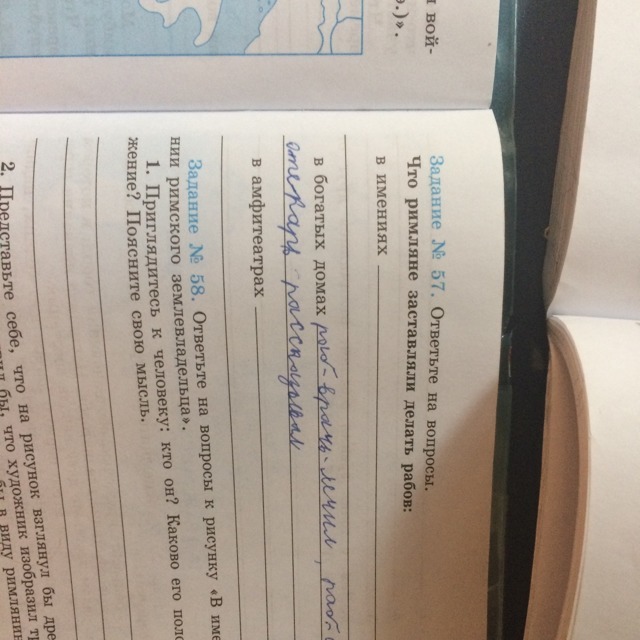 вой-
.)».
Задание № 57. Ответьте на вопросы.
Что римляне заставляли делать рабов:
в имениях
в богатых домах раб-врачь лечил, раб-
в амфитеатрах
Задание № 58. Ответьте на вопросы к рисунку «В име-
нии римского землевладельца».
1. Приглядитесь к человеку: кто он? Каково его поло-
жение? Поясните свою мысль.
2. Представьте себе, что на рисунок взглянул бы дре
бы, что художник изобразил
бы в виду римлянин